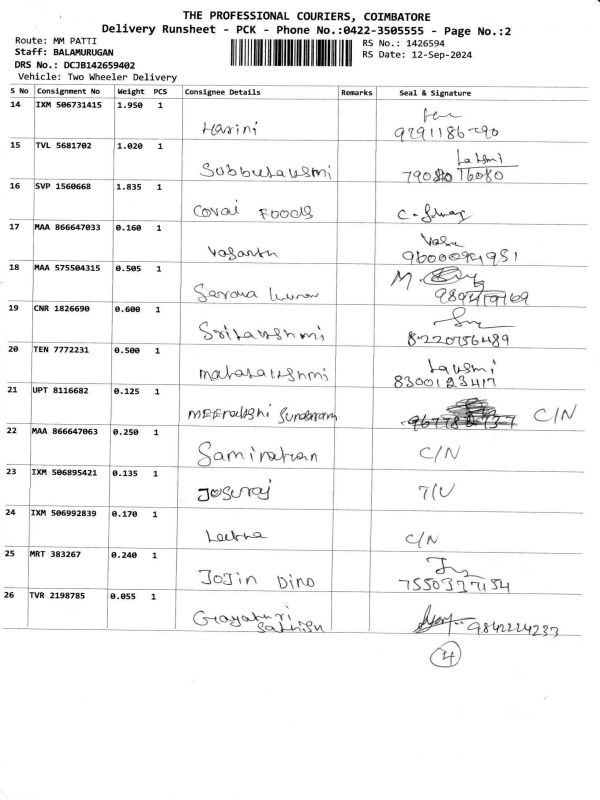 THE PROFESSIONAL COURIERS, COIMBATORE
Delivery Runsheet - PCK - Phone No.:0422-3505555 - Page No.:2
Route: MM PATTI RS No.: 1426594
Staff: BALAMURUGAN RS Date: 12-Sep-2024
DRS No.: DCJB142659402
Vehicle: Two Wheeler Delivery
S No Consignment No Weight PCS Consignee Details Remarks Seal & Signature
14 IXM 506731415 1.950 1
Harini 9791186790
15 TVL 5681702 1.020 1 Lakshmi
Subbulakshmi
16 SVP 1560668 1.835 1
Covai Foods
17 MAA 866647033 0.160 1
Vasanth
18 MAA 575504315 0.505 1
Sarava kumar
19 CNR 1826690 0.600 1
Srilakshmi 8220756489
20 TEN 7772231 0.500 1 Lakshmi
Mahalakshmi 8300123417
21 UPT 8116682 0.125 1
Meenakshi Sundaram C/N
22 MAA 866647063 0.250 1
C/N
23 IXM 506895421 0.135 1
Josuraj
24 IXM 506992839 0.170 1
C/N
25 MRT 383267 0.240 1
Jojin Dino 7550337154
26 TVR 2198785 0.055 1
Gayathri 9842224233
Sathish
4